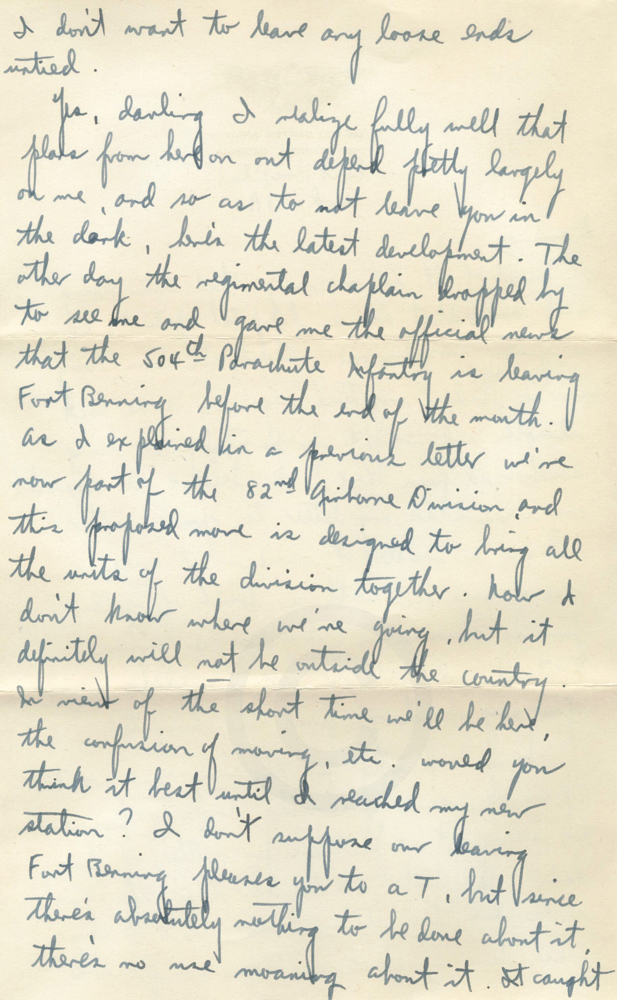 I don't want to leave any loose ends
untied.
Yes, darling I realize fully well that
plans from here on out depend pretty largely
on me, and so as to not leave you in
the dark, here's the latest development. The
other day the regimental chaplain dropped by
to see me and gave me the official news
that the 504th Parachute Infantry is leaving
Fort Benning before the end of the month.
As I explained in a previous letter we're
now part of the 82nd Airborne Division and
this proposed move is designed to bring all
the units of the division together. Now I
don't know where we're going, but it
definitely will not be outside the country.
In view of the short time we'll be here,
the confusion of moving, etc. would you
think it best until I reached my new
station? I don't suppose our leaving
Fort Benning pleases you to a T, but since
there's absolutely nothing to be done about it,
there's no use moaning about it. It caught